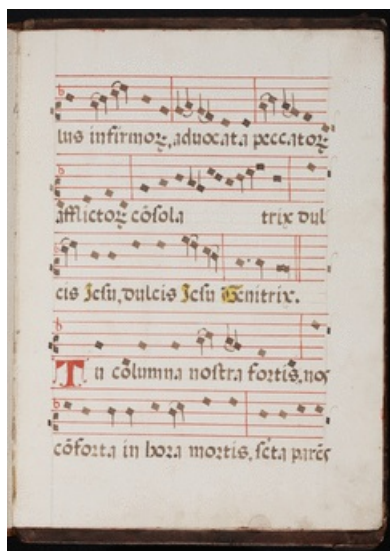 lus infirmoꝝ, aduocata peccatoꝝ
afflictoꝝ cõsola trix dul
cis Jesu, dulcis Jesu Genitrix.
Tu columna nostra fortis, nos
cõforta in hora mortis, scta parẽs